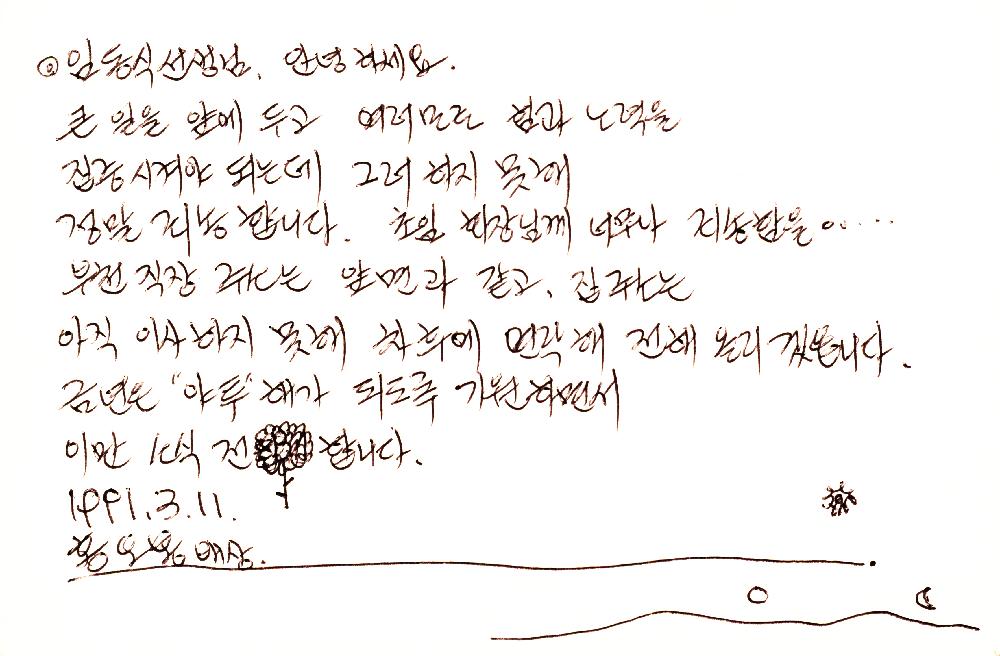 임동식선생님, 안녕하세요.
큰 일을 앞에 두고 여러모로 힘과 노력을
집중시켜야 되는데 그러 하지 못해
정말 죄송합니다. 초임 회장님께 너무나 죄송함을.....
우선 직장 주소는 앞면과 같고, 집 주소는
아직 이사하지 못해 차후에 연락해 전해 올리겠읍니다.
금년은 "야투"해가 되도록 기원하면서
이만 소식 전 합니다.
1991.3.11.